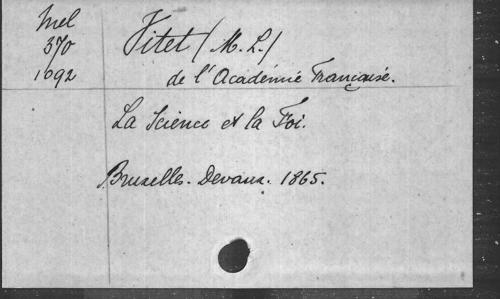 Mel
370
1092
Vitet (M. L.)
de l'Académie Française.
La Science et la Foi.
Bruxelles. Devaux. 1865.